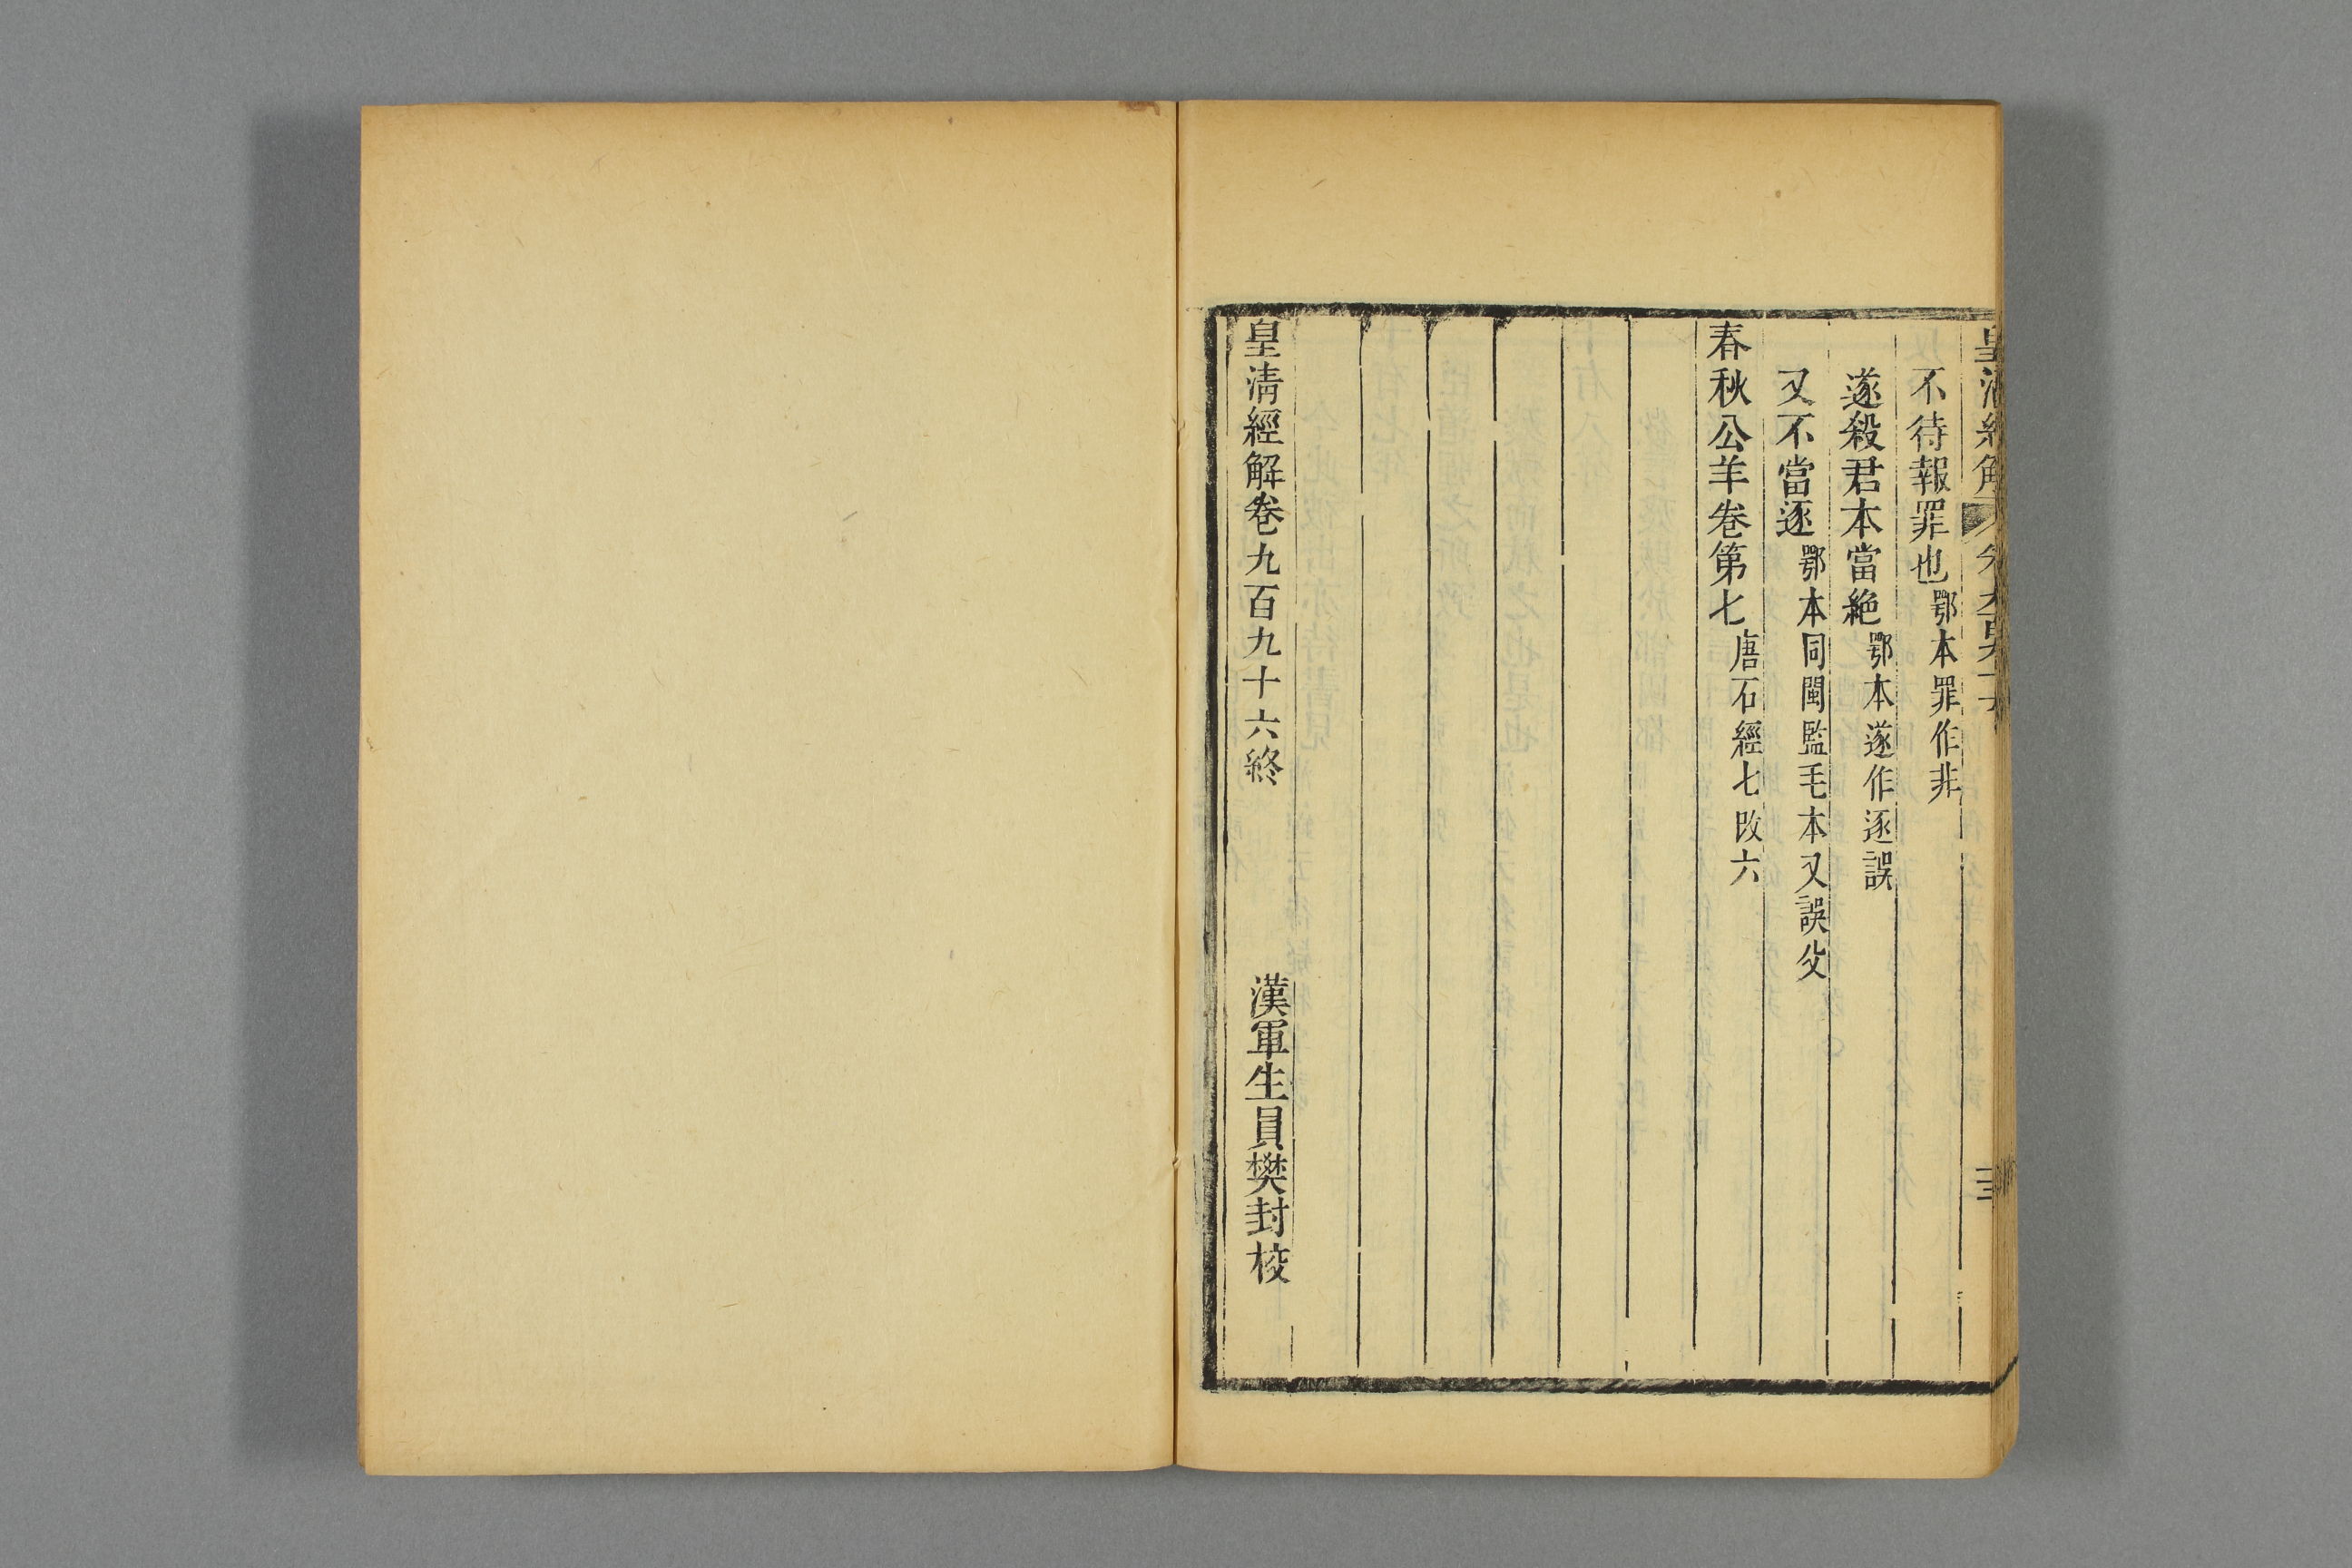 皇清經解
不待報罪也鄂本罪作非
遂殺君本當絶鄂本遂作逐誤
又不當逐鄂本同閩監毛本又誤父
春秋公羊卷第七唐石經七改六
皇清經解卷九百九十六終
漢軍生員樊封校